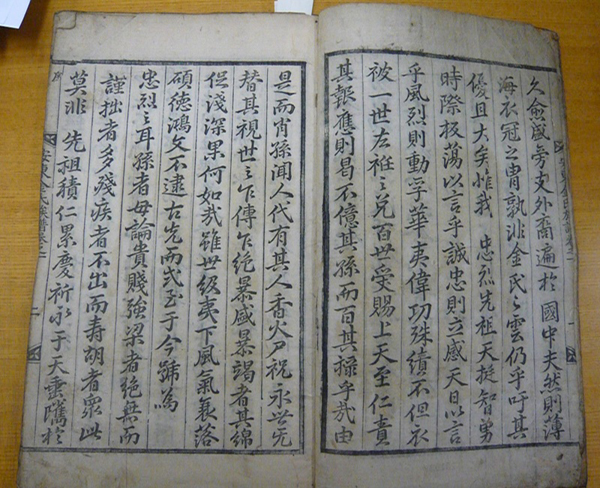 久愈盛旁支外裔遍於 國中夫然則薄
海衣冠之胄孰非金氏之雲仍乎吁其
優且大矣惟我 忠烈先祖天挺智勇
時際板蕩以言乎誠忠則立感天日以言
乎風烈則動孚華夷偉功殊績不但衣
被一世左袵之免百世受賜上天至仁責
其報應則曷不億其孫而百其祿乎哉由
是而肖孫聞人代有其人香火尸祝永世无
替其視世之乍傳乍絕暴盛暴竭者其綿
促淺深果何如哉雖世級夷下風氣衰落
碩德鴻文不逮古先而式至于今號為
忠烈之耳孫者毋論貴賤強梁者絕無而
謹拙者多殘疾者不出而壽胡者衆此
莫非 先祖積仁累慶祈永于天垂隲於
安東金氏族譜卷之一
二